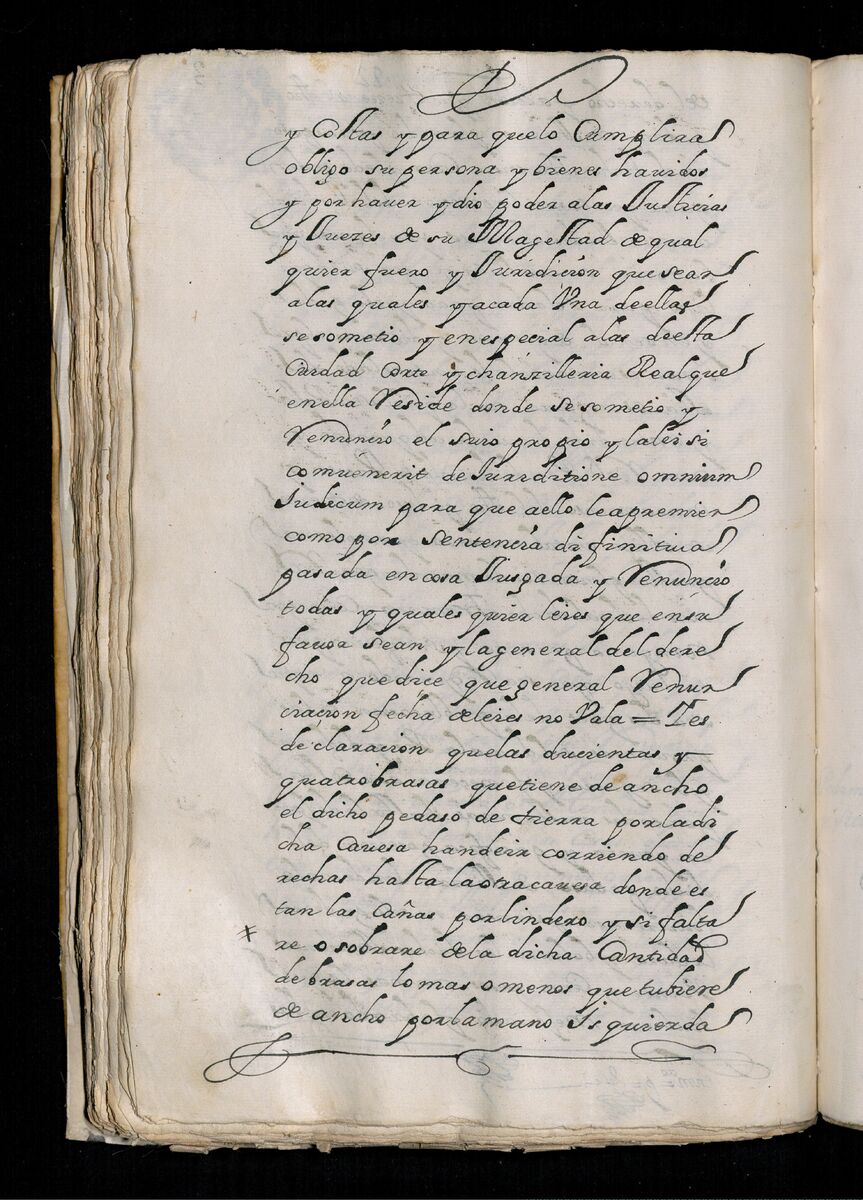 y Costas y para quelo Cumplira
obligo su persona y bienes havidos
y por haver y dio poder alas Justicias
y Juezes de su Magestad de qual
quier fuero y Juridicion que sean
alas quales y acada Vna deellas
se sometio y en especial alas deesta
Ciudad Corte y chanzilleria Real que
enella Reside donde se sometio y
Renuncio el suio propio y la lei si
combenerit de Juriditione omnium
Judicum para que aello le apremien
como por sentencia difinitiua
pasada en cosa Jusgada y Renuncio
todas y quales quier leies que en su
fauor sean y la general del dere
cho que dice que general Renun
ciacion fecha de leies no Vala = Y es
declaracion que las ducientas y
quatro brasas que tiene de ancho
el dicho pedaso de tierra por la di
cha Cavesa han de ir corriendo de
rechas hasta la otra cavesa donde es
tan las Cañas por lindero y si falta
re o sobrare de la dicha Cantidad
de brasas lo mas o menos que tubiere
de ancho por la mano Isquierda